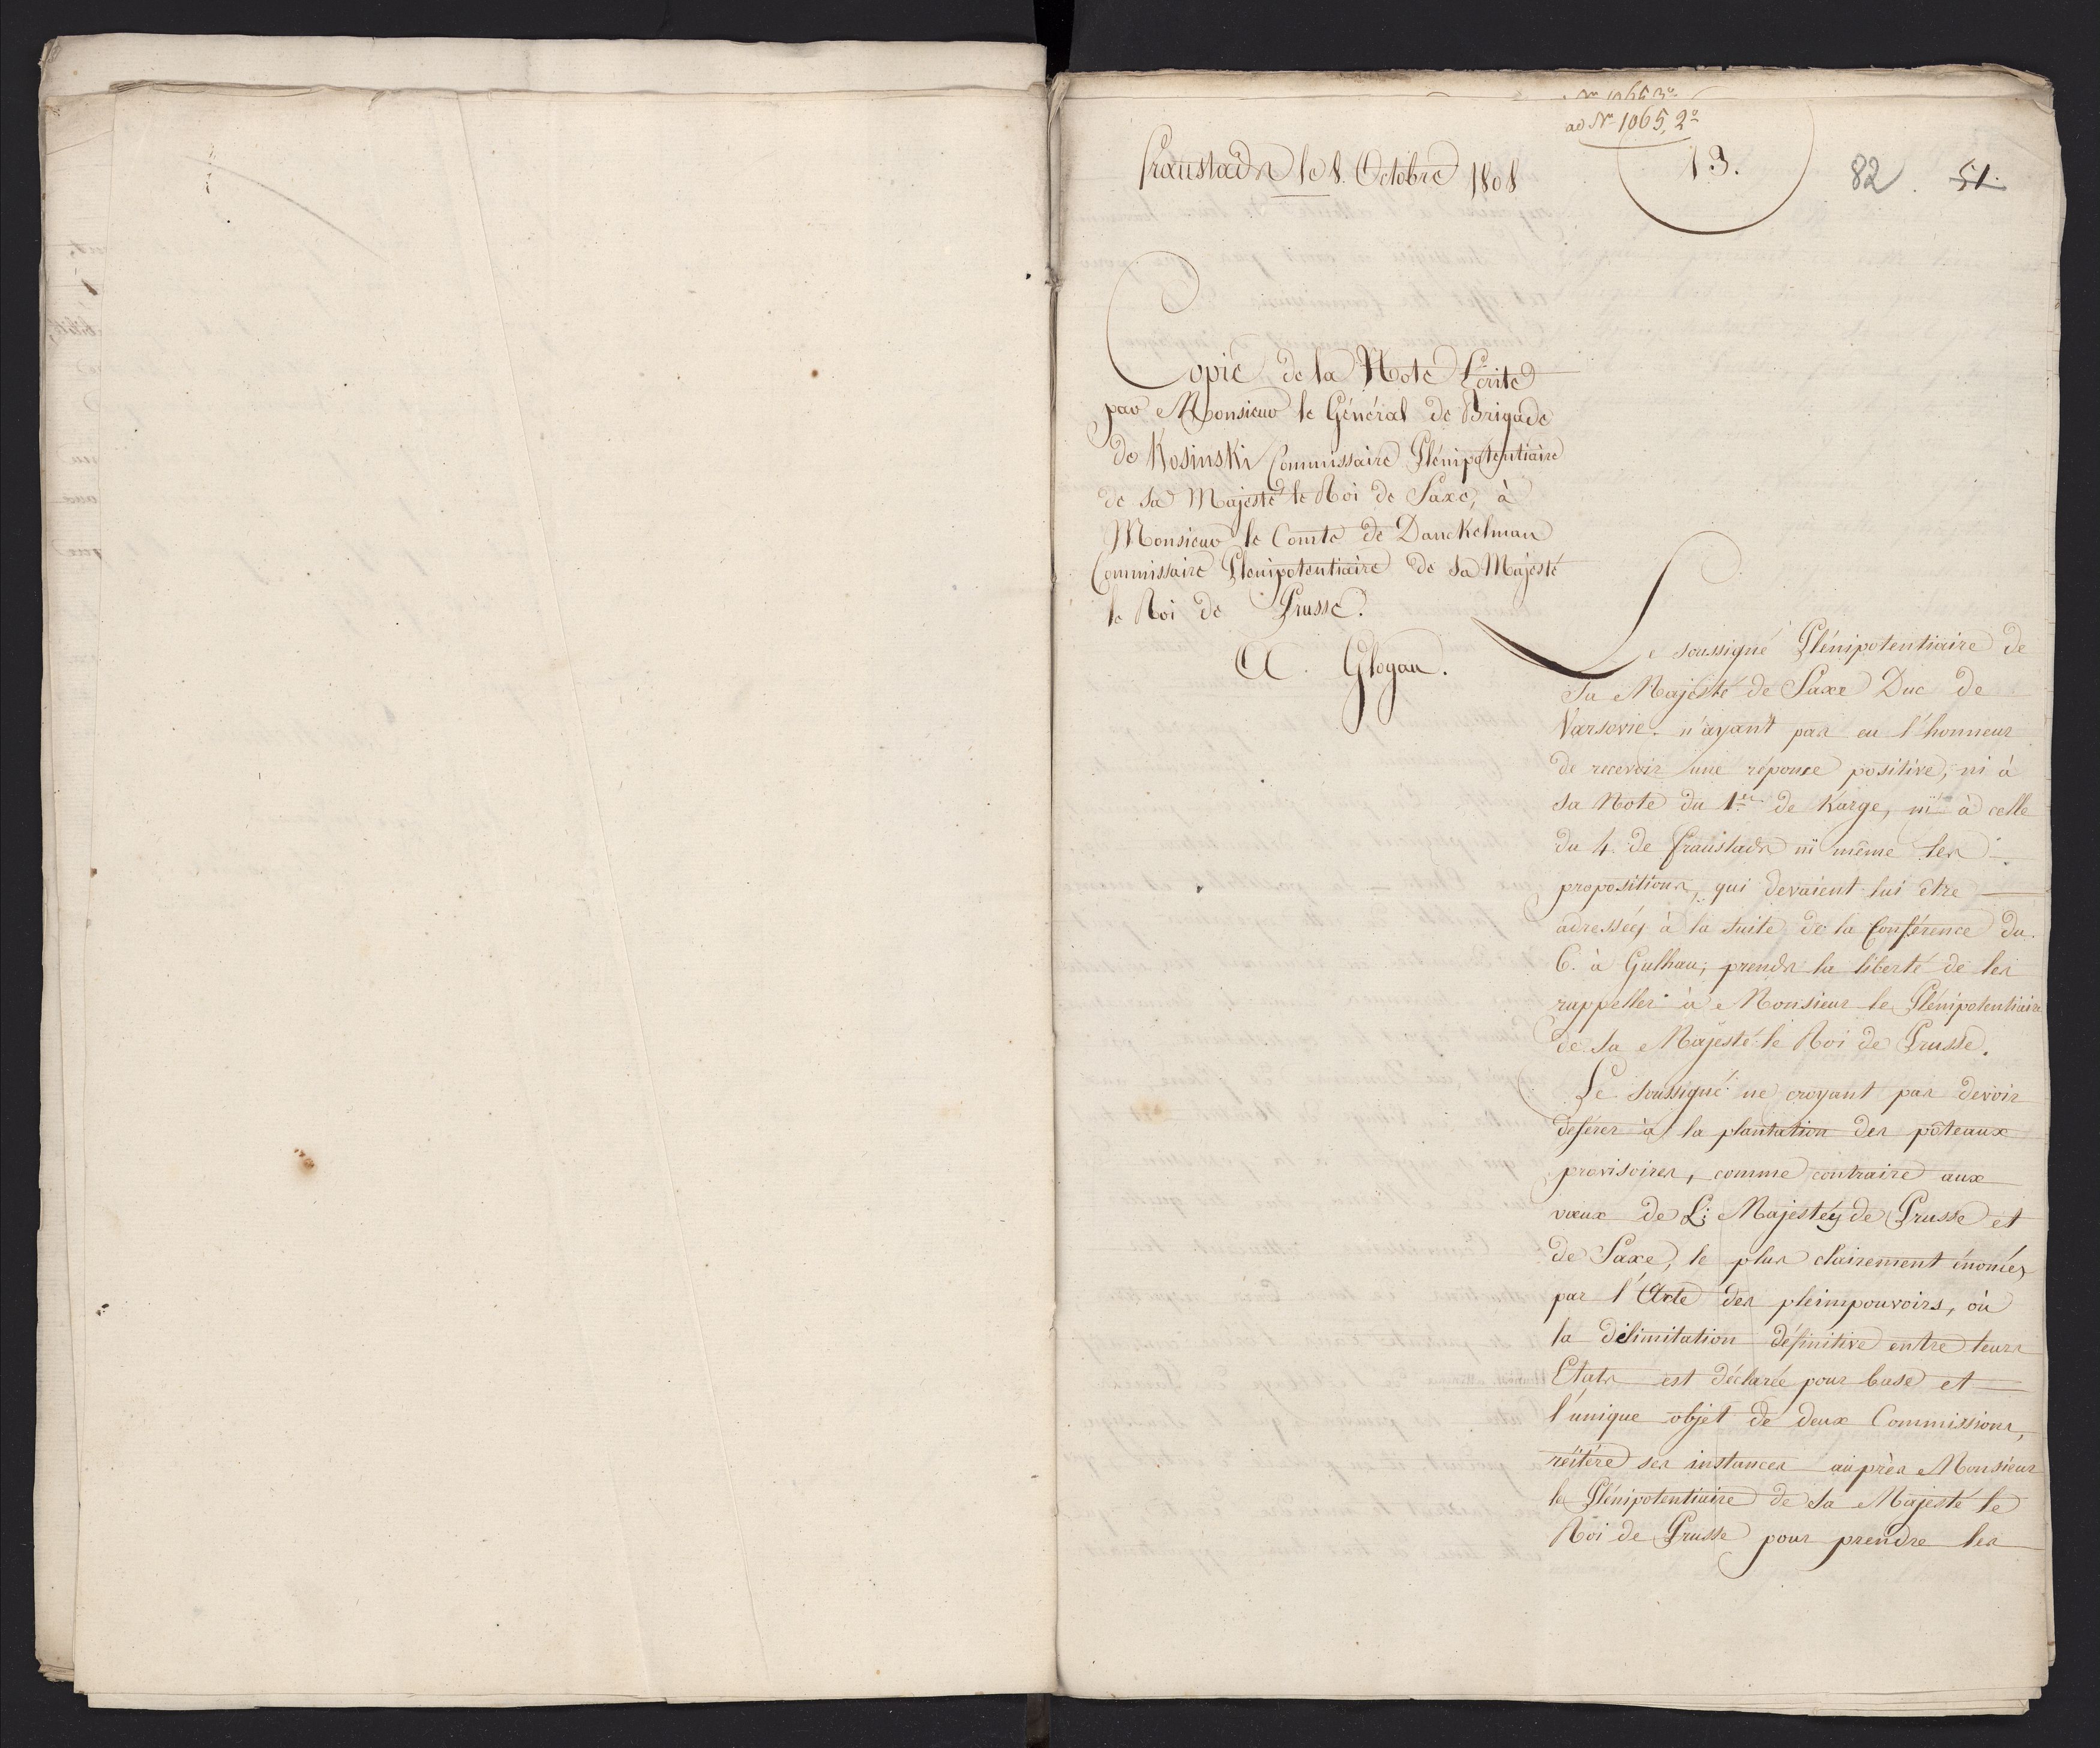 ad No 1065, 2o
13.
82 51.
fraustadt le 8. Octobre 1808
Copie de la Note Ecrite
par Monsieur le Général de Brigade
de Kosinski Commissaire Plénipotentiaire
de sa Majesté le Roi de Saxe, à
Monsieur le Comte de Danckelman
Commissaire Plenipotentiaire de sa Majesté
le Roi de Prusse.
A. Glogau.
Le soussigné Plénipotentiaire de
Sa Majesté de Saxe Duc de
Varsovie. n'ayant pas eu l'honneur
de recevoir une réponse positive, ni à
sa Note du 1er de Karge, ni à celle
du 4. de fraustadt ni même les
propositions, qui devaient lui être
adressées à la suite de la Conférence du
6. à Gulhau, prends la liberté de les
rappeller à Monsieur le Plénipotentiaire
de Sa Majesté le Roi de Prusse.
Le soussigné ne croyant pas devoir
deférer à la plantation des pôteaux
provisoires, comme contraire aux
voeux de L: Majestés de Prusse et
de Saxe, le plus clairement énonés
par l'Acte des pleinpouvoirs, où
la délimitation définitive entre leurs
Etats est déclarée pour base et
l'unique objet de deux Commissions,
réitère ses instances auprès Monsieur
le Plénipotentiaire de Sa Majesté le
Roi de Prusse pour prendre les